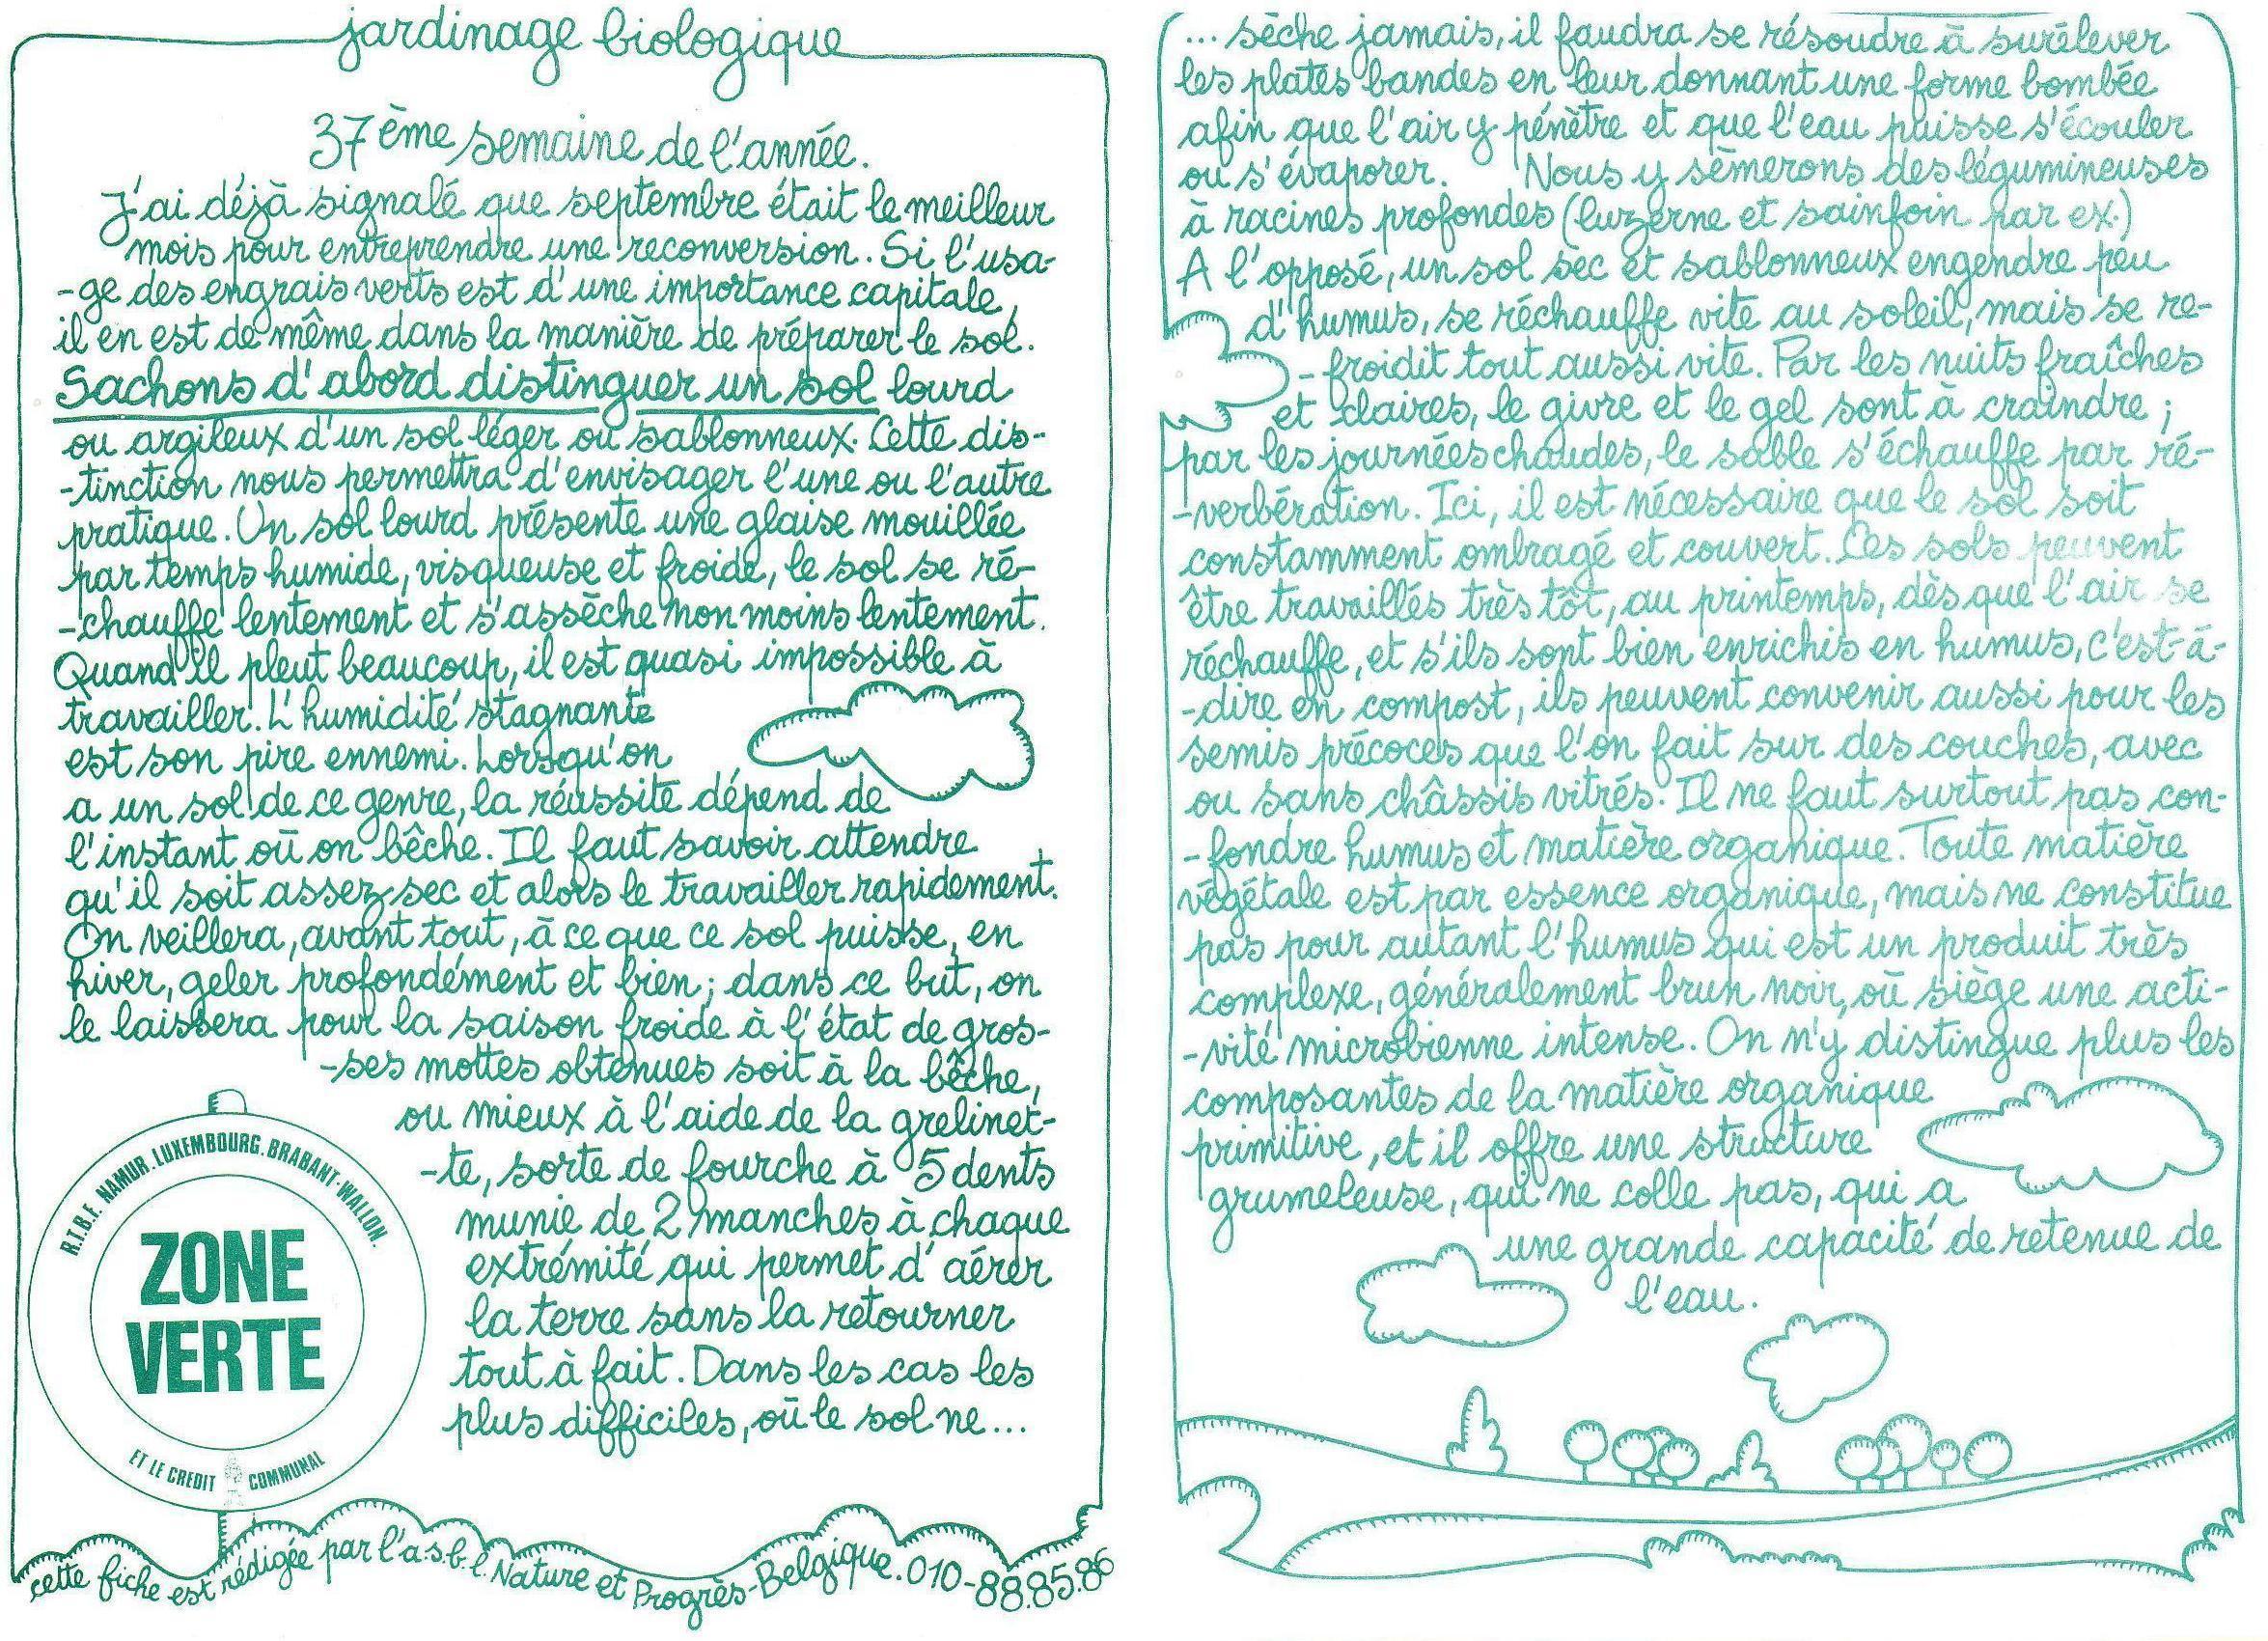 jardinage biologique
37ème semaine de l'année.
J'ai déjà signalé que septembre était le meilleur
mois pour entreprendre une reconversion. Si l'usa-
-ge des engrais verts est d'une importance capitale,
il en est de même dans la manière de préparer le sol.
Sachons d'abord distinguer un sol lourd
ou argileux d'un sol léger ou sablonneux. Cette dis-
-tinction nous permettra d'envisager l'une ou l'autre
pratique. Un sol lourd présente une glaise mouillée
par temps humide, visqueuse et froide, le sol se ré-
-chauffe lentement et s'assèche non moins lentement.
Quand il pleut beaucoup, il est quasi impossible à
travailler. L'humidité stagnante
est son pire ennemi. Lorsqu'on
a un sol de ce genre, la réussite dépend de
l'instant où on bêche. Il faut savoir attendre
qu'il soit assez sec et alors le travailler rapidement.
On veillera, avant tout, à ce que ce sol puisse, en
hiver, geler profondément et bien; dans ce but, on
le laissera pour la saison froide à l'état de gros-
-ses mottes obtenues soit à la bêche,
ou mieux à l'aide de la grelinet-
-te, sorte de fourche à 5 dents
munie de 2 manches à chaque
extrémité qui permet d'aérer
la terre sans la retourner
tout à fait. Dans les cas les
plus difficiles, où le sol ne...
R.T.B.F. NAMUR. LUXEMBOURG. BRABANT-WALLON.
ZONE
VERTE
ET LE CREDIT COMMUNAL
cette fiche est rédigée par l'a.s.b.l. Nature et Progrès-Belgique. 010-88.85.86
... sèche jamais, il faudra se résoudre à surélever
les plates bandes en leur donnant une forme bombée
afin que l'air y pénètre et que l'eau puisse s'écouler
ou s'évaporer. Nous y sèmerons des légumineuses
à racines profondes (luzerne et sainfoin par ex.)
A l'opposé, un sol sec et sablonneux engendre peu
d'humus, se réchauffe vite au soleil, mais se re-
-froidit tout aussi vite. Par les nuits fraîches
et claires, le givre et le gel sont à craindre;
par les journées chaudes, le sable s'échauffe par ré-
-verbération. Ici, il est nécessaire que le sol soit
constamment ombragé et couvert. Ces sols peuvent
être travaillés très tôt, au printemps, dès que l'air se
réchauffe, et s'ils sont bien enrichis en humus, c'est-à-
-dire en compost, ils peuvent convenir aussi pour les
semis précoces que l'on fait sur des couches, avec
ou sans châssis vitrés. Il ne faut surtout pas con-
-fondre humus et matière organique. Toute matière
végétale est par essence organique, mais ne constitue
pas pour autant l'humus qui est un produit très
complexe, généralement brun noir, où siège une acti-
-vité microbienne intense. On n'y distingue plus les
composantes de la matière organique
primitive, et il offre une structure
grumeleuse, qui ne colle pas, qui a
une grande capacité de retenue de
l'eau.